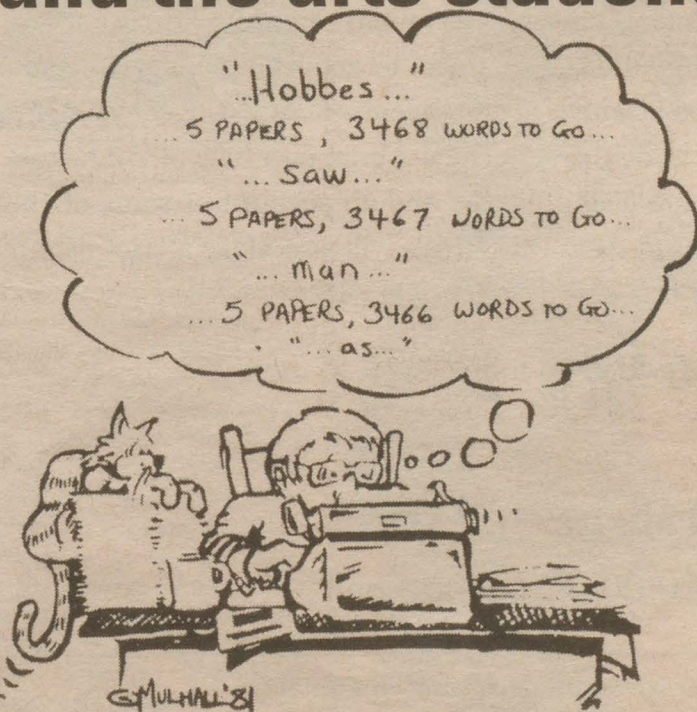 and the arts student
"...Hobbes..."
...5 PAPERS, 3468 WORDS TO GO...
"...saw..."
...5 PAPERS, 3467 WORDS TO GO...
"...man..."
...5 PAPERS, 3466 WORDS TO GO...
"...as..."
G MULHALL '81